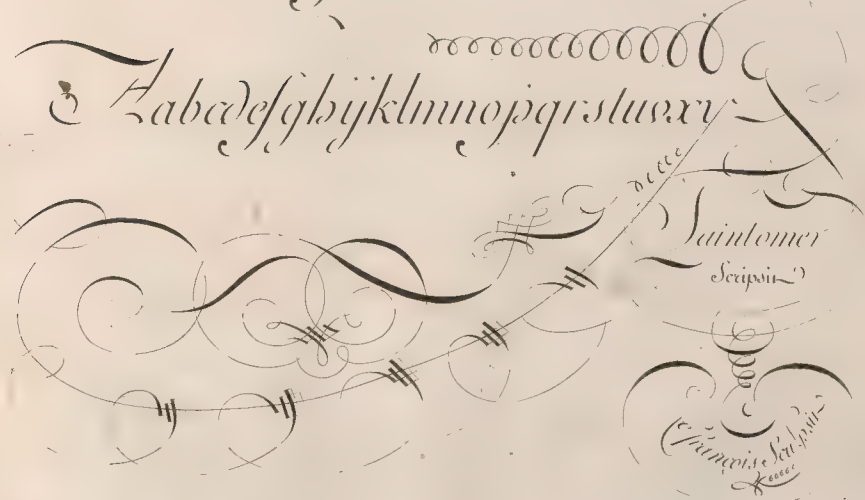 Aabcdefghijklmnopqrstuvxy
Saintomer
Scripsit
françois Scripsit